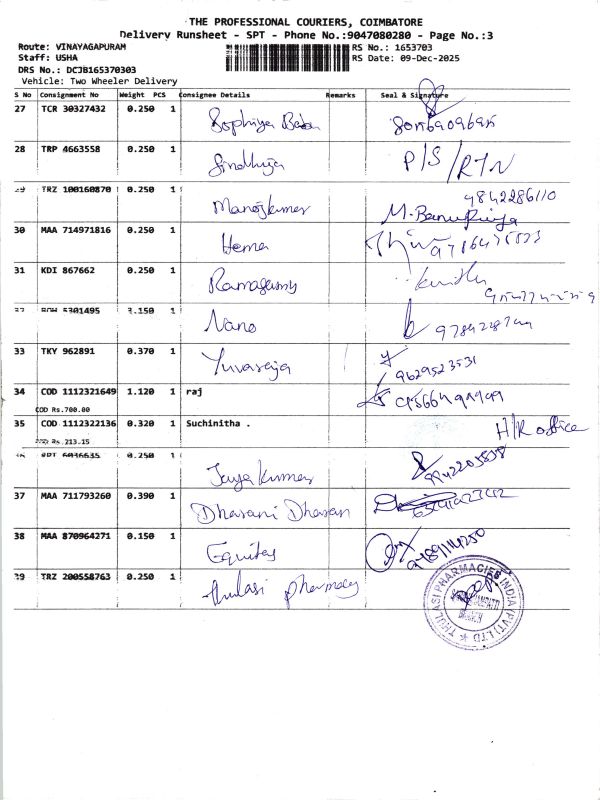 THE PROFESSIONAL COURIERS, COIMBATORE
Delivery Runsheet - SPT - Phone No.:9047080280 - Page No.:3
Route: VINAYAGAPURAM
RS No.: 1653703
Staff: USHA
RS Date: 09-Dec-2025
DRS No.: DCJB165370303
Vehicle: Two Wheeler Delivery
S No Consignment No Weight PCS Consignee Details Remarks Seal & Signature
27 TCR 30327432 0.250 1 Sophiya
28 TRP 4663558 0.250 1 Sindhuja P/S/RTN
29 TRZ 100160870 0.250 1 Manojkumar 9842286110
30 MAA 714971816 0.250 1 Hema
31 KDI 867662 0.250 1 Ramasamy
5301495 1 Nano
33 TKY 962891 0.370 1 Yuvaraja 9629523531
34 COD 1112321649 1.120 1 raj
COD Rs.700.00
35 COD 1112322136 0.320 1 Suchinitha . H/R office
Rs.213.15
6036635 0.250 1 Jayakumar 9942205838
37 MAA 711793260 0.390 1 Dharani Dharan
38 MAA 870964271 0.150 1 Equitas
39 TRZ 200558763 0.250 1 thulasi pharmacy
THULASI PHARMACIES INDIA (PVT) LTD
BRANCH